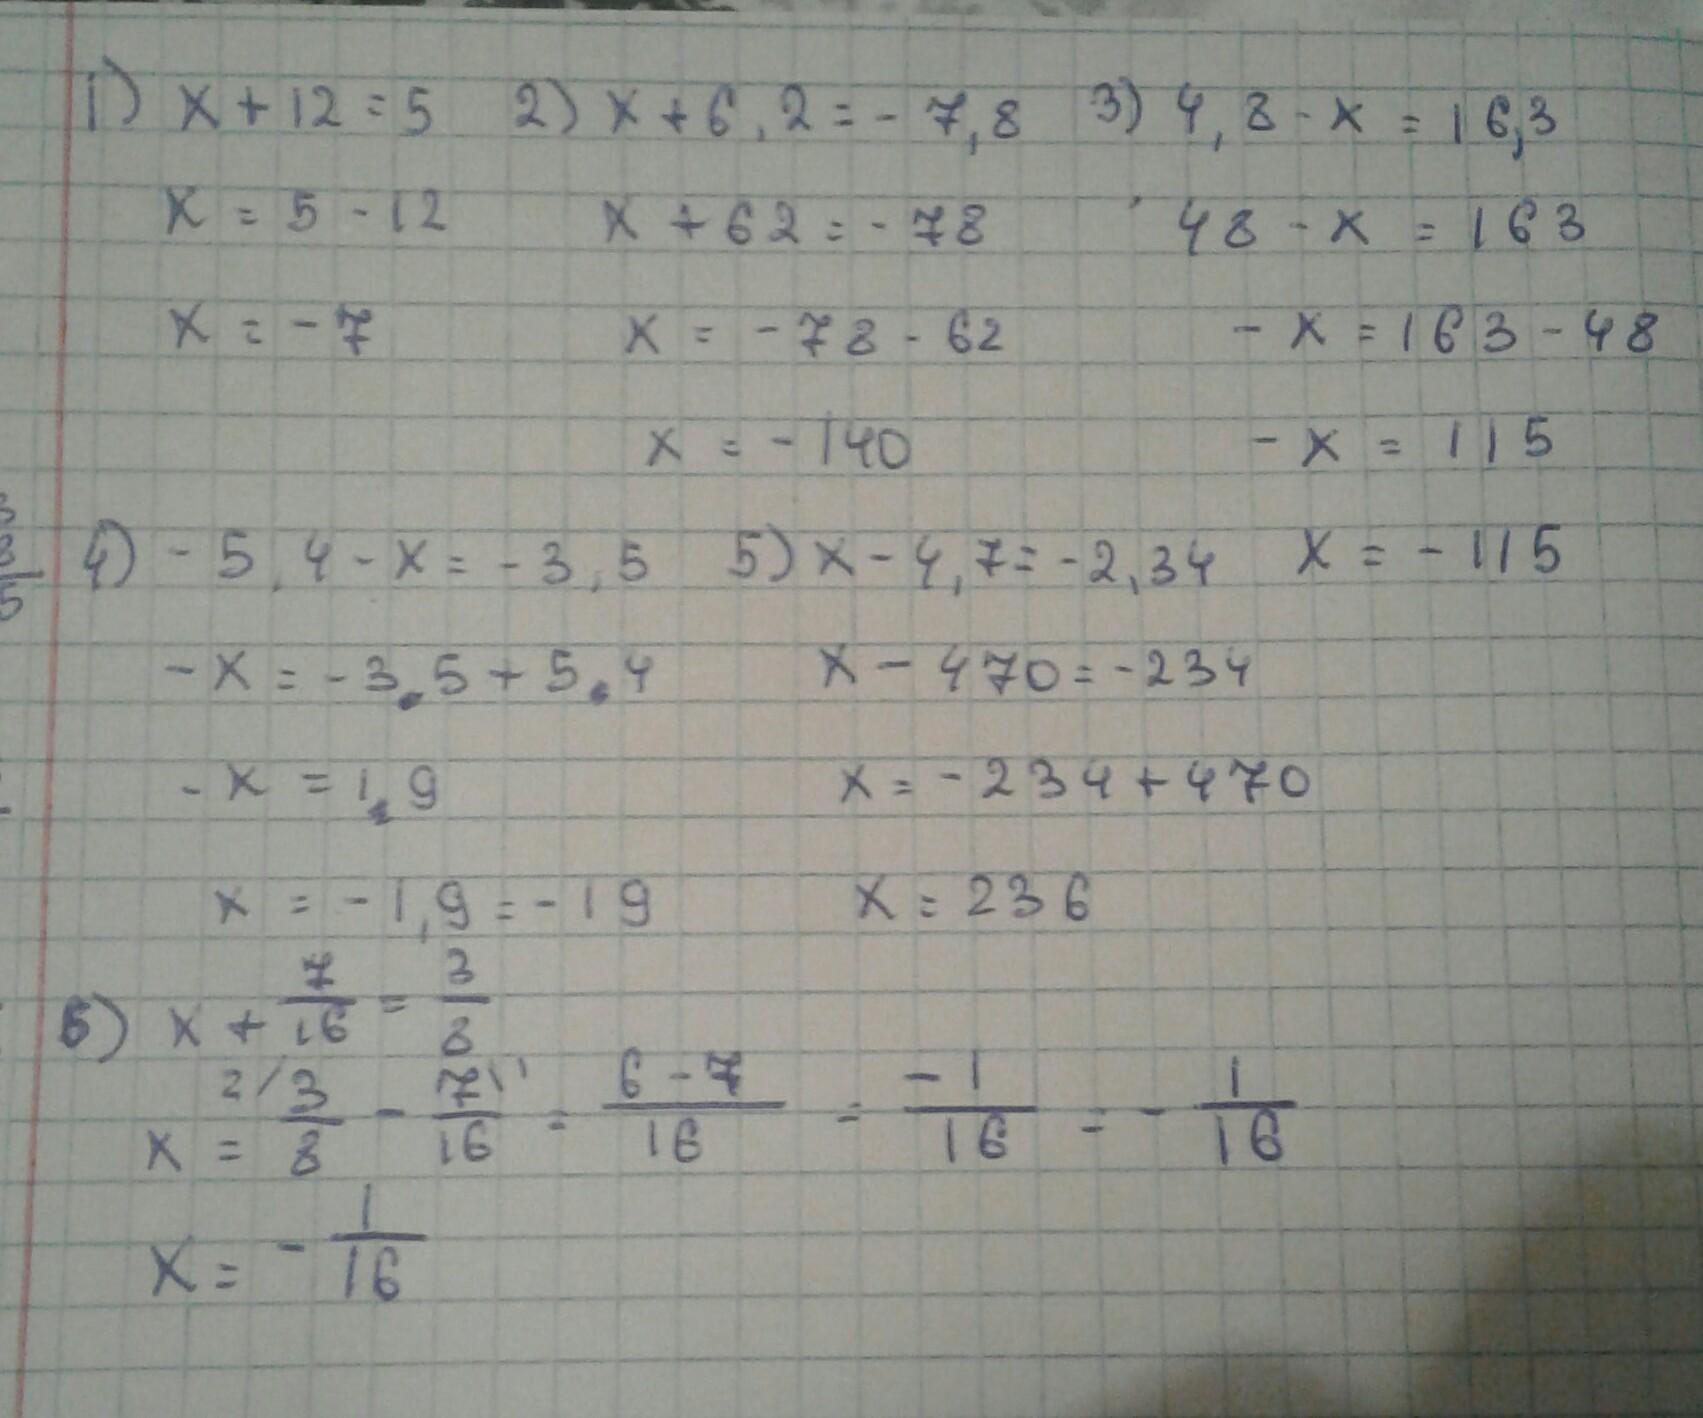 1) x + 12 = 5 2) x + 6,2 = - 7,8 3) 4,8 - x = 16,3
x = 5 - 12 x + 62 = - 78 48 - x = 163
x = - 7 x = - 78 - 62 - x = 163 - 48
x = - 140 - x = 115
4) - 5,4 - x = - 3,5 5) x - 4,7 = - 2,34 x = - 115
- x = - 3,5 + 5,4 x - 470 = - 234
- x = 1,9 x = - 234 + 470
x = - 1,9 = - 19 x = 236
6) x + 7/16 = 3/8
x = 2/ 3/8 - 7/16 \1 = (6 - 7)/16 = (-1)/16 = - 1/16
x = - 1/16